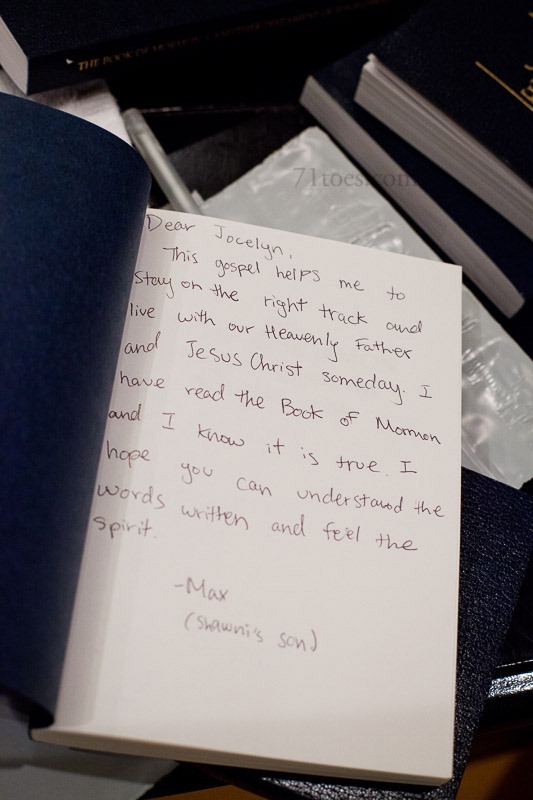 THE BOOK OF MORMON
71toes.com
Dear Jocelyn,
This gospel helps me to
stay on the right track and
live with our Heavenly Father
and Jesus Christ someday. I
have read the Book of Mormon
and I know it is true. I
hope you can understand the
words written and feel the
spirit.
-Max
(Shawni's son)